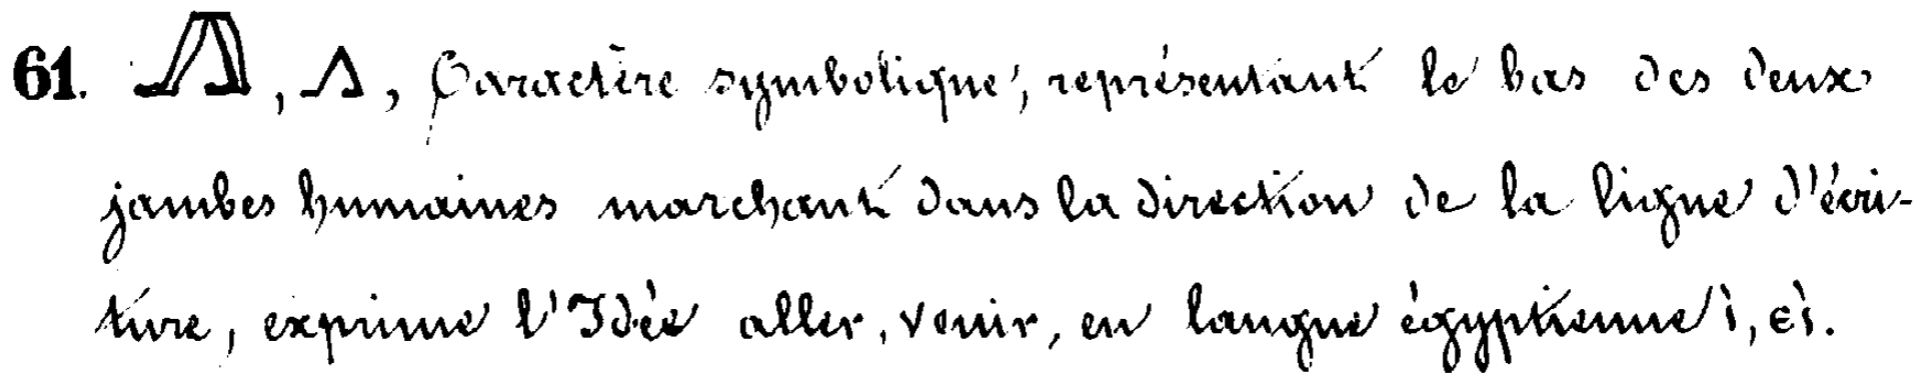 61. 𓂻, 𓂻, Caractère symbolique, représentant le bas des deux
jambes humaines marchant dans la direction de la ligne d'écri-
ture, exprime l'Idée aller, venir, en langue égyptienne ì, ⲉì.